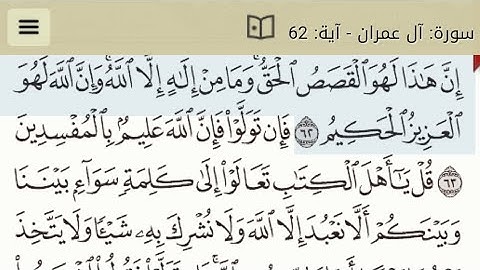 سورة: آل عمران - آية: 62
إِنَّ هَٰذَا لَهُوَ ٱلْقَصَصُ ٱلْحَقُّ ۚ وَمَا مِنْ إِلَٰهٍ إِلَّا ٱللَّهُ ۚ وَإِنَّ ٱللَّهَ لَهُوَ
ٱلْعَزِيزُ ٱلْحَكِيمُ ٦٢ فَإِن تَوَلَّوْا۟ فَإِنَّ ٱللَّهَ عَلِيمٌۢ بِٱلْمُفْسِدِينَ
٦٣ قُلْ يَٰٓأَهْلَ ٱلْكِتَٰبِ تَعَالَوْا۟ إِلَىٰ كَلِمَةٍ سَوَآءٍۭ بَيْنَنَا
وَبَيْنَكُمْ أَلَّا نَعْبُدَ إِلَّا ٱللَّهَ وَلَا نُشْرِكَ بِهِۦ شَيْـًٔا وَلَا يَتَّخِذَ